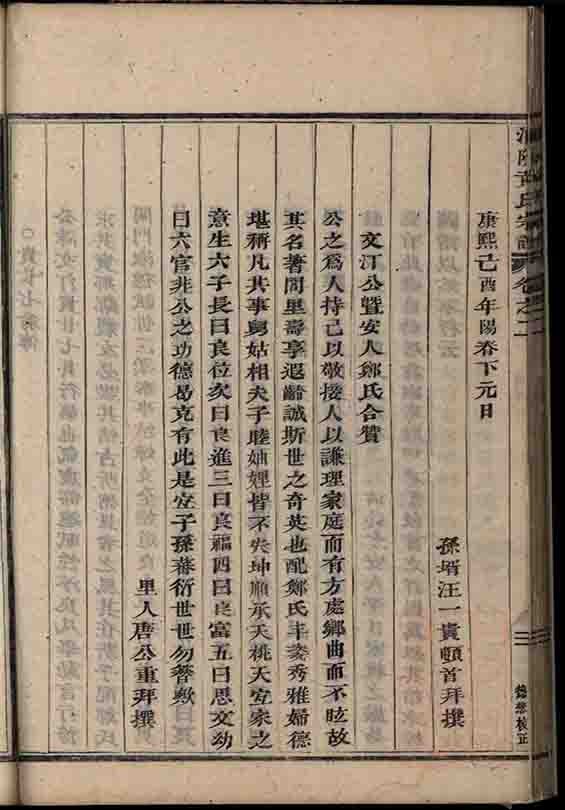 黃氏宗譜 卷之二
康熙己酉年陽春下元日
孫壻汪一貴頓首拜撰
文汀公暨安人鄭氏合贊
公之爲人持己以敬接人以謙理家庭而有方處鄉曲而不眩故
其名著閭里壽享遐齡誠斯世之奇英也配鄭氏丰姿秀雅婦德
堪稱凡其事舅姑相夫子睦妯娌皆不失坤順承天桃夭宜家之
意生六子長曰良位次曰良進三曰良福四曰良富五曰思文幼
曰六官非公之功德曷克有此是宜子孫蕃衍世世勿替歟
里人唐公重拜撰
三
校正